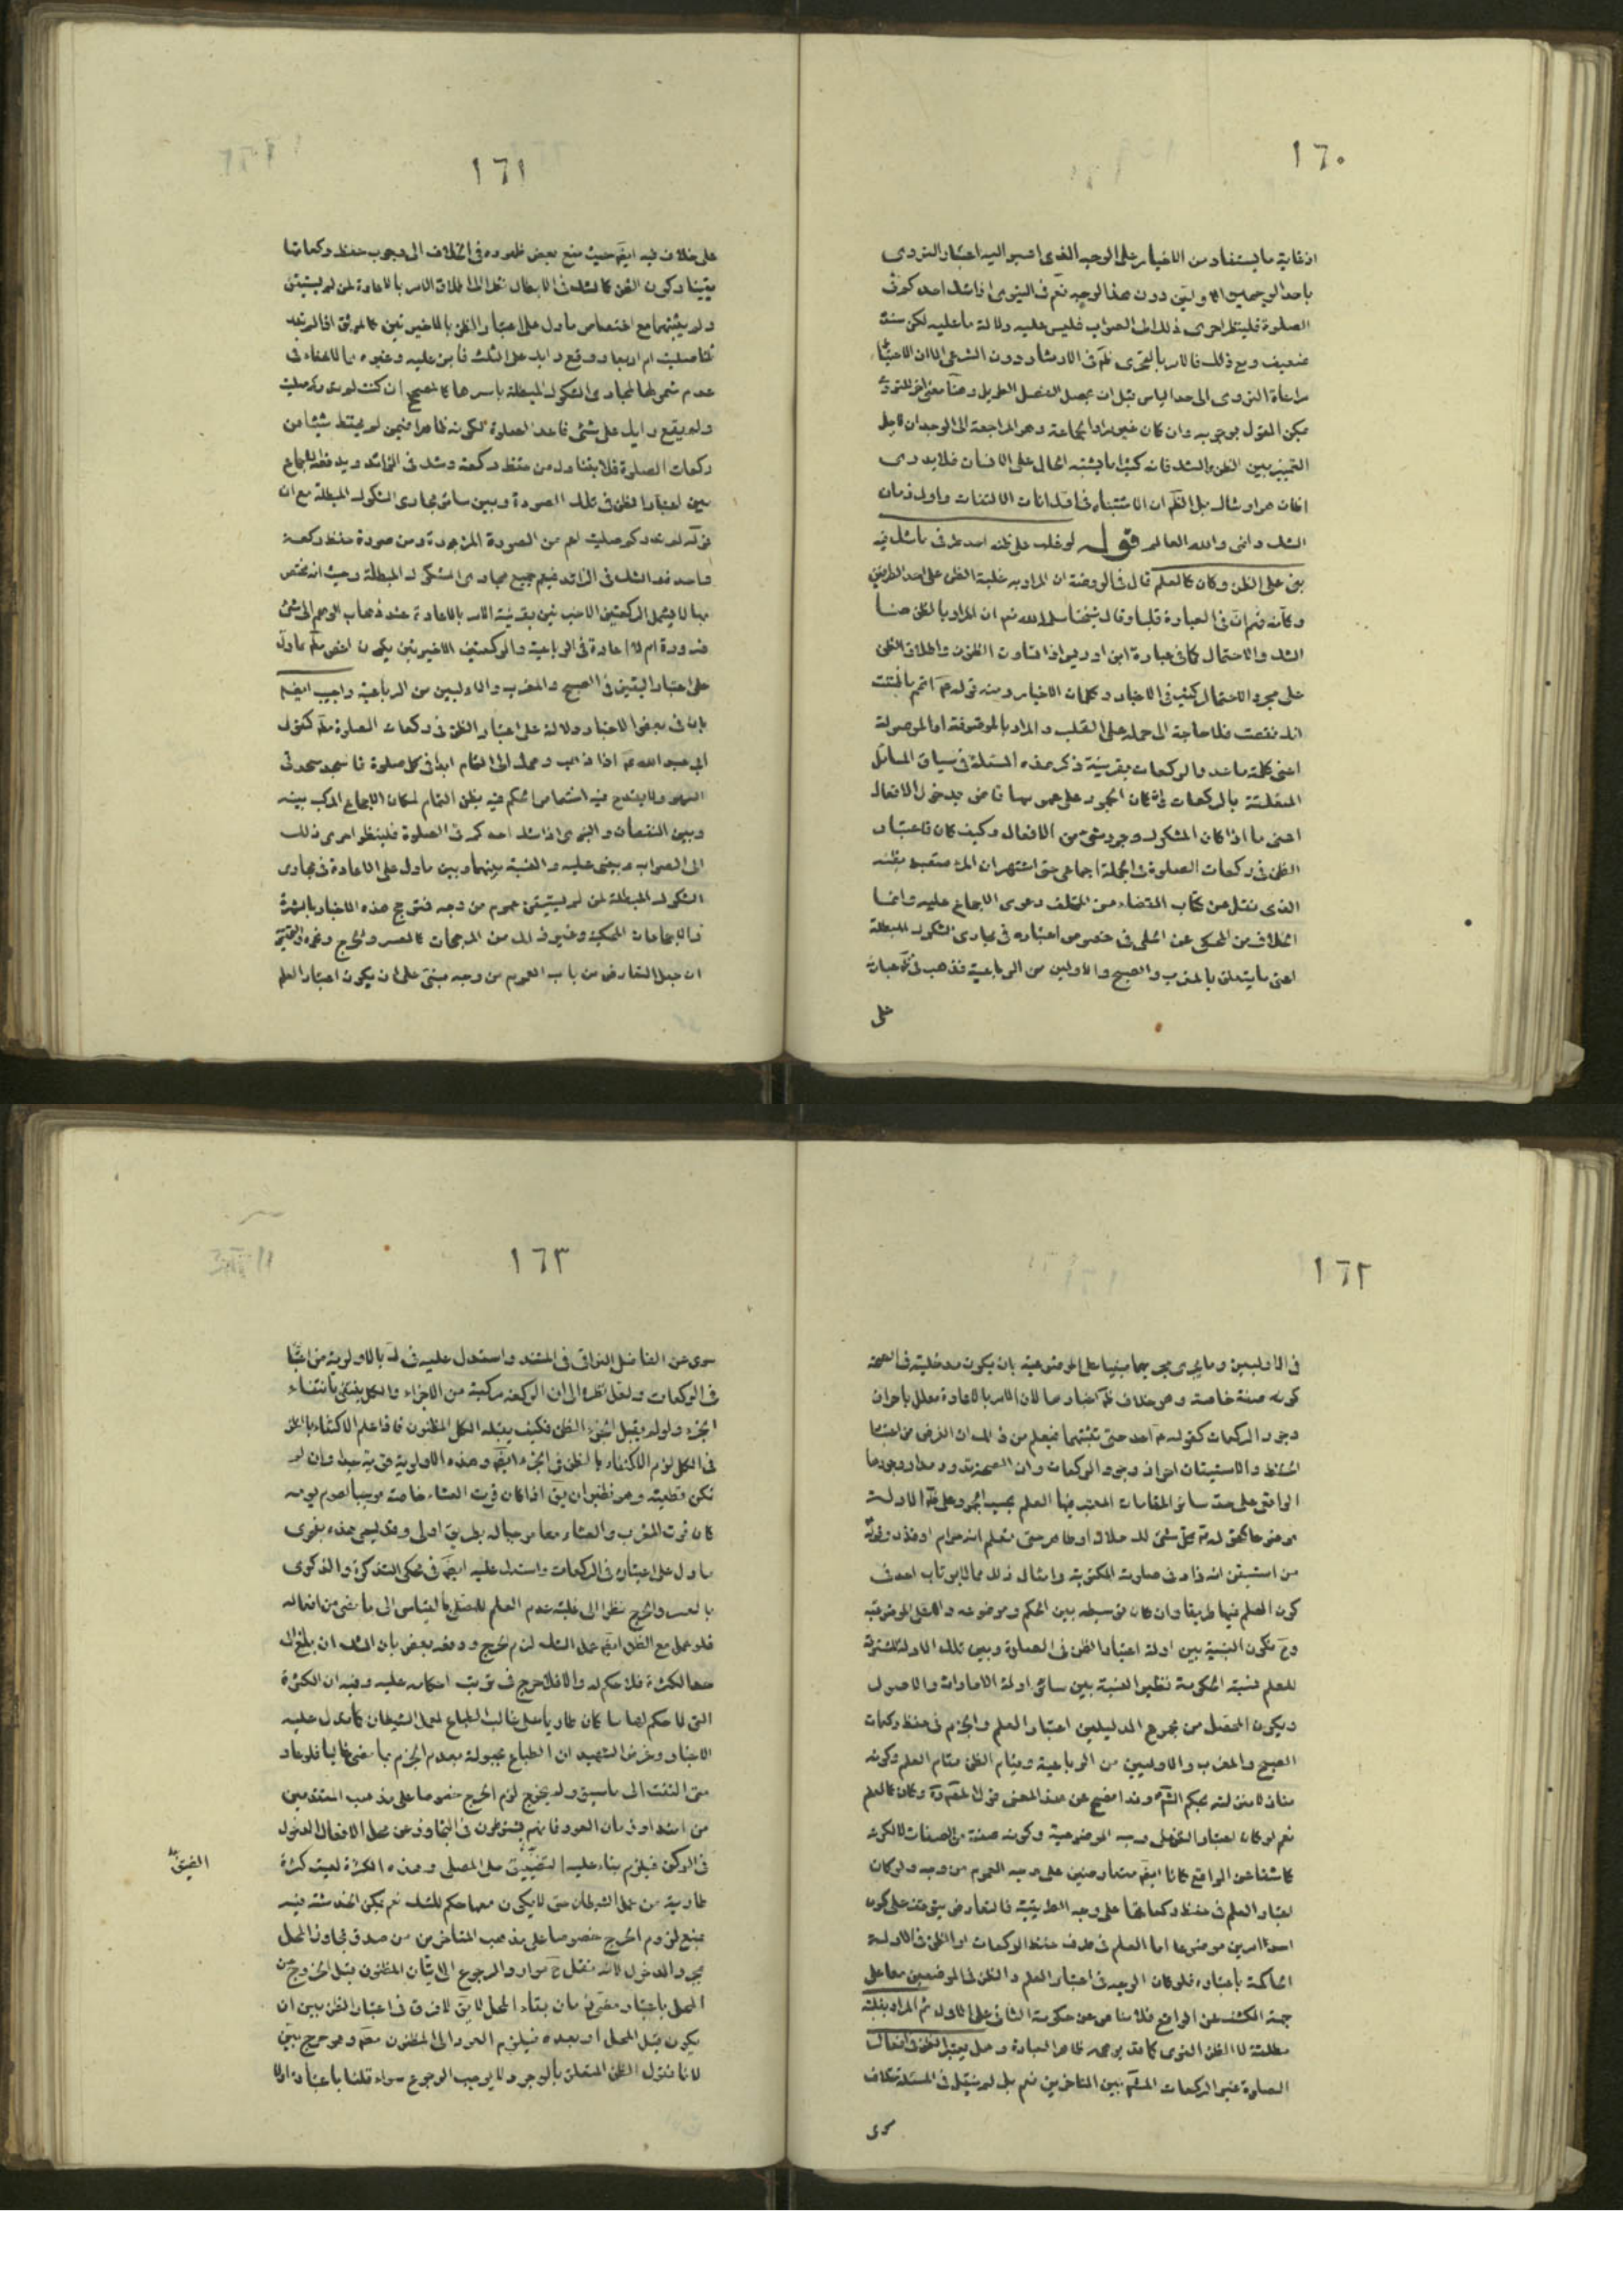 ١٦٠
اذ غاية ما يستفاد من الاخبار على الوجه الذى اشير اليه اعتبار التروى
باحد الوجهين الاولين دون هذا الوجه نعم فى النبوى اذا شك احدكم فى
الصلوة فلينظر احرى ذلك الى الصواب فليس عليه دلالة ما عليه لكن سنده
ضعيف ومع ذلك فالامر بالتحرى ظ فى الارشاد دون الشرعى الا ان الاحتياط
مراعاة التروى الى حد الياس قبل ان يحصل الفصل الطويل وهنا معنى اخر للتروى
يمكن القول بوجوبه وان كان غير مراد الجماعة وهو المراجعة الى الوجدان لاجل
التميز بين الظن والشك فانه كثيرا ما يشتبه الحال على الانسان فلا يدرى
انه ظان هو او شاك بل الظ ان الاشتباه فى اول انات الالتفات واول زمان
الشك والله العالم قوله لو غلب على ظنه احد طرفى ما شك فيه
بنى على الظن وكان كالعلم قال فى الروضة ان المراد به غلبة الظن على احد الطرفين
وكأنه فهم ان فى العبارة قلبا وقال شيخنا سلمه الله نعم ان المراد بالظن هنا
الشك والاحتمال كما فى عبارة ابن ادريس اذا تفاوت الظنون واطلاق الظن
على مجرد الاحتمال كثير فى الاخبار وكلمات الاخيار ومنه قوله ع اتم ما ظننت
انك نقصت فلا حاجة الى حمله على القلب والمراد بالموصوفة او الموصولة
اعنى كلمة ما عدد الركعات بقرينة ذكر هذه المسئلة فى سياق المسائل
المتعلقة بالركعات وان كان الجمود على عمومها قاض بدخول الافعال
اعنى ما اذا كان المشكوك وجود شئ من الافعال وكيف كان فاعتبار
الظن فى ركعات الصلوة فى الجملة اجماعى حتى اشتهر ان المرء متعبد بظنه
الذى نقل عن كتاب القضاء من المختلف دعوى الاجماع عليه وانما
الخلاف من المحكى عن الحلى فى خصوص اعتباره فى مجارى الشكوك المبطلة
اعنى ما يتعلق بالمغرب والصبح والاولين من الرباعية فذهب فى ظ عبارته
على
١٦١
على خلاف فيه ايضا حيث منع بعض ظهوره فى الخلاف الى وجوب حفظ ركعاتها
يقينا وكون الظن كالشك فى الابطال نظرا الى اطلاق الامر بالاعادة لمن لم يستيقن
ولم يثبتهما مع اختصاص ما دل على اعتبار الظن بالاخيرتين كالموثق اذا لم تدر
ثلثا صليت ام اربعا ووقع رايك على الثلث فابن عليه وغيره مما لا خفاء فى
عدم شموله لمجارى الشكوك المبطلة باسرها كالصحيح ان كنت لم تدر كم صليت
ولم يقع رايك على شئ فاعد الصلوة لكونه ظاهرا فيمن لم يحفظ شيئا من
ركعات الصلوة فلا يتناول من حفظ ركعة وشك فى الزائد ويدفعه الاجماع
بين اعتبار الظن فى تلك الصورة وبين سائر مجارى الشكوك المبطلة مع ان
قوله لم تدر كم صليت اعم من الصورة المزبورة ومن صورة حفظ ركعة
واحدة والشك فى الزائد فيعم جميع مجارى الشكوك المبطلة وحيث انه مختص
بها لا يشمل الركعتين الاخيرتين بقرينة الامر بالاعادة عند ذهاب الوهم الى شئ
ضرورة ام لا اعادة فى الرباعية والركعتين الاخيرتين يكون اخص مما دل
على اعتبار اليقين فى الصبح والمغرب والاوليين من الرباعية واجيب ايضا
بان فى بعض الاخبار دلالة على اعتبار الظن فى ركعات الصلوة مطلقا كقول
ابى عبد الله ع اذا ذهب وهمك الى التمام ابدا فى كل صلوة فاسجد سجدتى
السهو ولا يقدح فيه اختصاص الحكم فيه بظن التمام لمكان الاجماع المركب بينه
وبين النقصان والنبوى اذا شك احدكم فى الصلوة فلينظر احرى ذلك
الى الصواب ويبنى عليه والنسبة بينهما وبين ما دل على الاعادة فى مجارى
الشكوك المبطلة لمن لم يستيقن عموم من وجه فترجح هذه الاخبار بالشهرة
والاجماعات المحكية وغير ذلك من المرجحات كالعسر والحرج وغيره والتحقيق
ان جعل التعارض من باب العموم من وجه مبنى على ان يكون اعتبار العلم
١٦٢
فى الاوليين وما يجرى مجريهما مبنيا على الموضوعية بان يكون مدخليته فى الصحة
كونه صفة خاصة وهو خلاف ظ اخبارها لان الامر بالاعادة معلل باحراز
وجود الركعات كقوله ع اعد حتى تثبتهما فيعلم من ذلك ان الغرض من اعتبار
الحفظ والاستيقان احراز وجود الركعات وان الصحة تدور مدار وجودها
الواقعى على حد سائر المقامات المعتبر فيها العلم بحسب الجمود على ظ الادلة
موضوعا كقوله ع كل شئ لك حلال او طاهر حتى تعلم انه حرام او قذر وقوله
من استيقن انه زاد فى صلوته المكتوبة وامثال ذلك مما لا يرتاب احد فى
كون العلم فيها طريقا وان كان متوسطه بين الحكم وموضوعه والاصل الموضوعية
وح تكون النسبة بين ادلة اعتبار الظن فى الصلوة وبين تلك الادلة المشترطة
للعلم نسبة الحكومة نظير النسبة بين سائر ادلة الامارات والاصول
ويكون المحصل من مجموع الدليلين اعتبار العلم والجزم فى حفظ ركعات
الصبح والمغرب والاوليين من الرباعية وقيام الظن مقام العلم وكونه
منزلا منزلته بحكم الشرع وقد افصح عن هذا المعنى قول المصنف ره وكان كالعلم
نعم لو كان اعتبار الظن على وجه الموضوعية وكونه صفة من الصفات لا لكونه
كاشفا عن الواقع كانا ايضا متعارضين على وجه العموم من وجه ولو كان
اعتبار العلم فى حفظ ركعاتها على وجه الطريقية فالتعارض يتوقف على كون
احد الامرين موضوعا اما العلم فى طرف حفظ الركعات او الظن فى الادلة
الحاكمة باعتباره فلو كان الوجه فى اعتبار العلم والظن فى الموضعين معا على
جهة الكشف عن الواقع فلا مناص عن حكومة الثانى على الاول ثم المراد بغلبة
مطلقه لا الظن القوى كما قد يوهمه ظاهر العبارة وهل يعتبر الظن فى افعال
الصلوة غير الركعات المشهور بين المتاخرين نعم بل لم ينقل فى المسئلة خلاف
سوى
١٦٣
سوى عن الفاضل النراقى فى المستند واستدل عليه فى له بالاولوية من اعتباره
فى الركعات ولعل نظره الى ان الركعة مركبة من الاجزاء والكل ينتفى بانتفاء
الجزء ولو لم يقبل الجزء الظن فكيف يقبله الكل المظنون فاذا علم الاكتفاء بالظن
فى الكل لزم الاكتفاء بالظن فى الجزء ايضا وهذه الاولوية قوية جدا وان لم
تكن قطعية وهو نظير ان يق اذا كان فوت العشاء خاصة موجبا لصوم يومه
كان فوت المغرب والعشاء معا موجبا له بطريق اولى وقد يسمى هذه بفحوى
ما دل على اعتباره فى الركعات واستدل عليه ايضا فى محكى التذكرة والذكرى
بالعسر والحرج نظرا الى غلبة عدم العلم للمصلى بالقياس الى ما مضى من افعاله
فلو عمل مع الظن ايضا عمل الشك لزم الحرج ودفعه بعض بان الشك ان بلغ الى
حد الكثرة فلا حكم له والا فلا حرج فى ترتيب احكامه عليه وفيه ان الكثرة
التى لا حكم لها ما كان طاريا على غالب الطباع لعمل الشيطان كما يدل عليه
الاخبار وغرض الشهيد ان الطباع مجبولة بعدم الجزم بما مضى غالبا فلو عاد
متى التفت الى ما سبق ولم يخرج لزم الحرج خصوصا على مذهب المتقدمين
من امتداد زمان العود فانهم يشترطون فى التجاوز عن محل الافعال الدخول
فى الركن فيلزم بناء عليه التضييق على المصلى وهذه الكثرة ليست كثرة
طارية من عمل الشيطان حتى لا يكون معها حكم للشك نعم يمكن الخدشة فيه
بمنع لزوم الحرج خصوصا على مذهب المتاخرين من صدق تجاوز المحل
بمجرد الدخول لانه تقل ح موارد الرجوع الى الاتيان المظنون قبل الخروج عن
المحل باعتبار مضى زمان بقاء المحل لا يق لا فرق فى اعتبار الظن بين ان
يكون قبل المحل او بعده فيلزم العود الى المظنون مطلقا وهو حرج بين
لانا نقول الظن المتعلق بالوجود لا يوجب الرجوع سواء قلنا باعتباره او لا